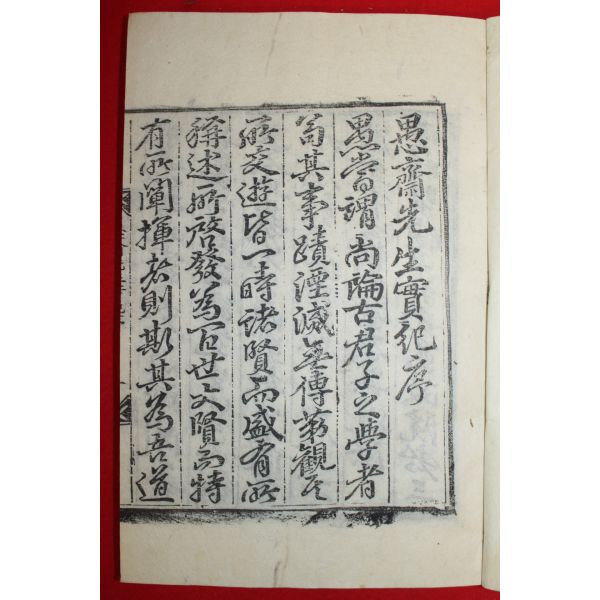 愚齋先生實紀序
愚嘗謂尚論古君子之學者
苟其事蹟湮滅無傳第觀其
所交遊皆一時諸賢而盛有所
稱述所啓發為百世之賢而特
有所闡揮者則斯其為吾道